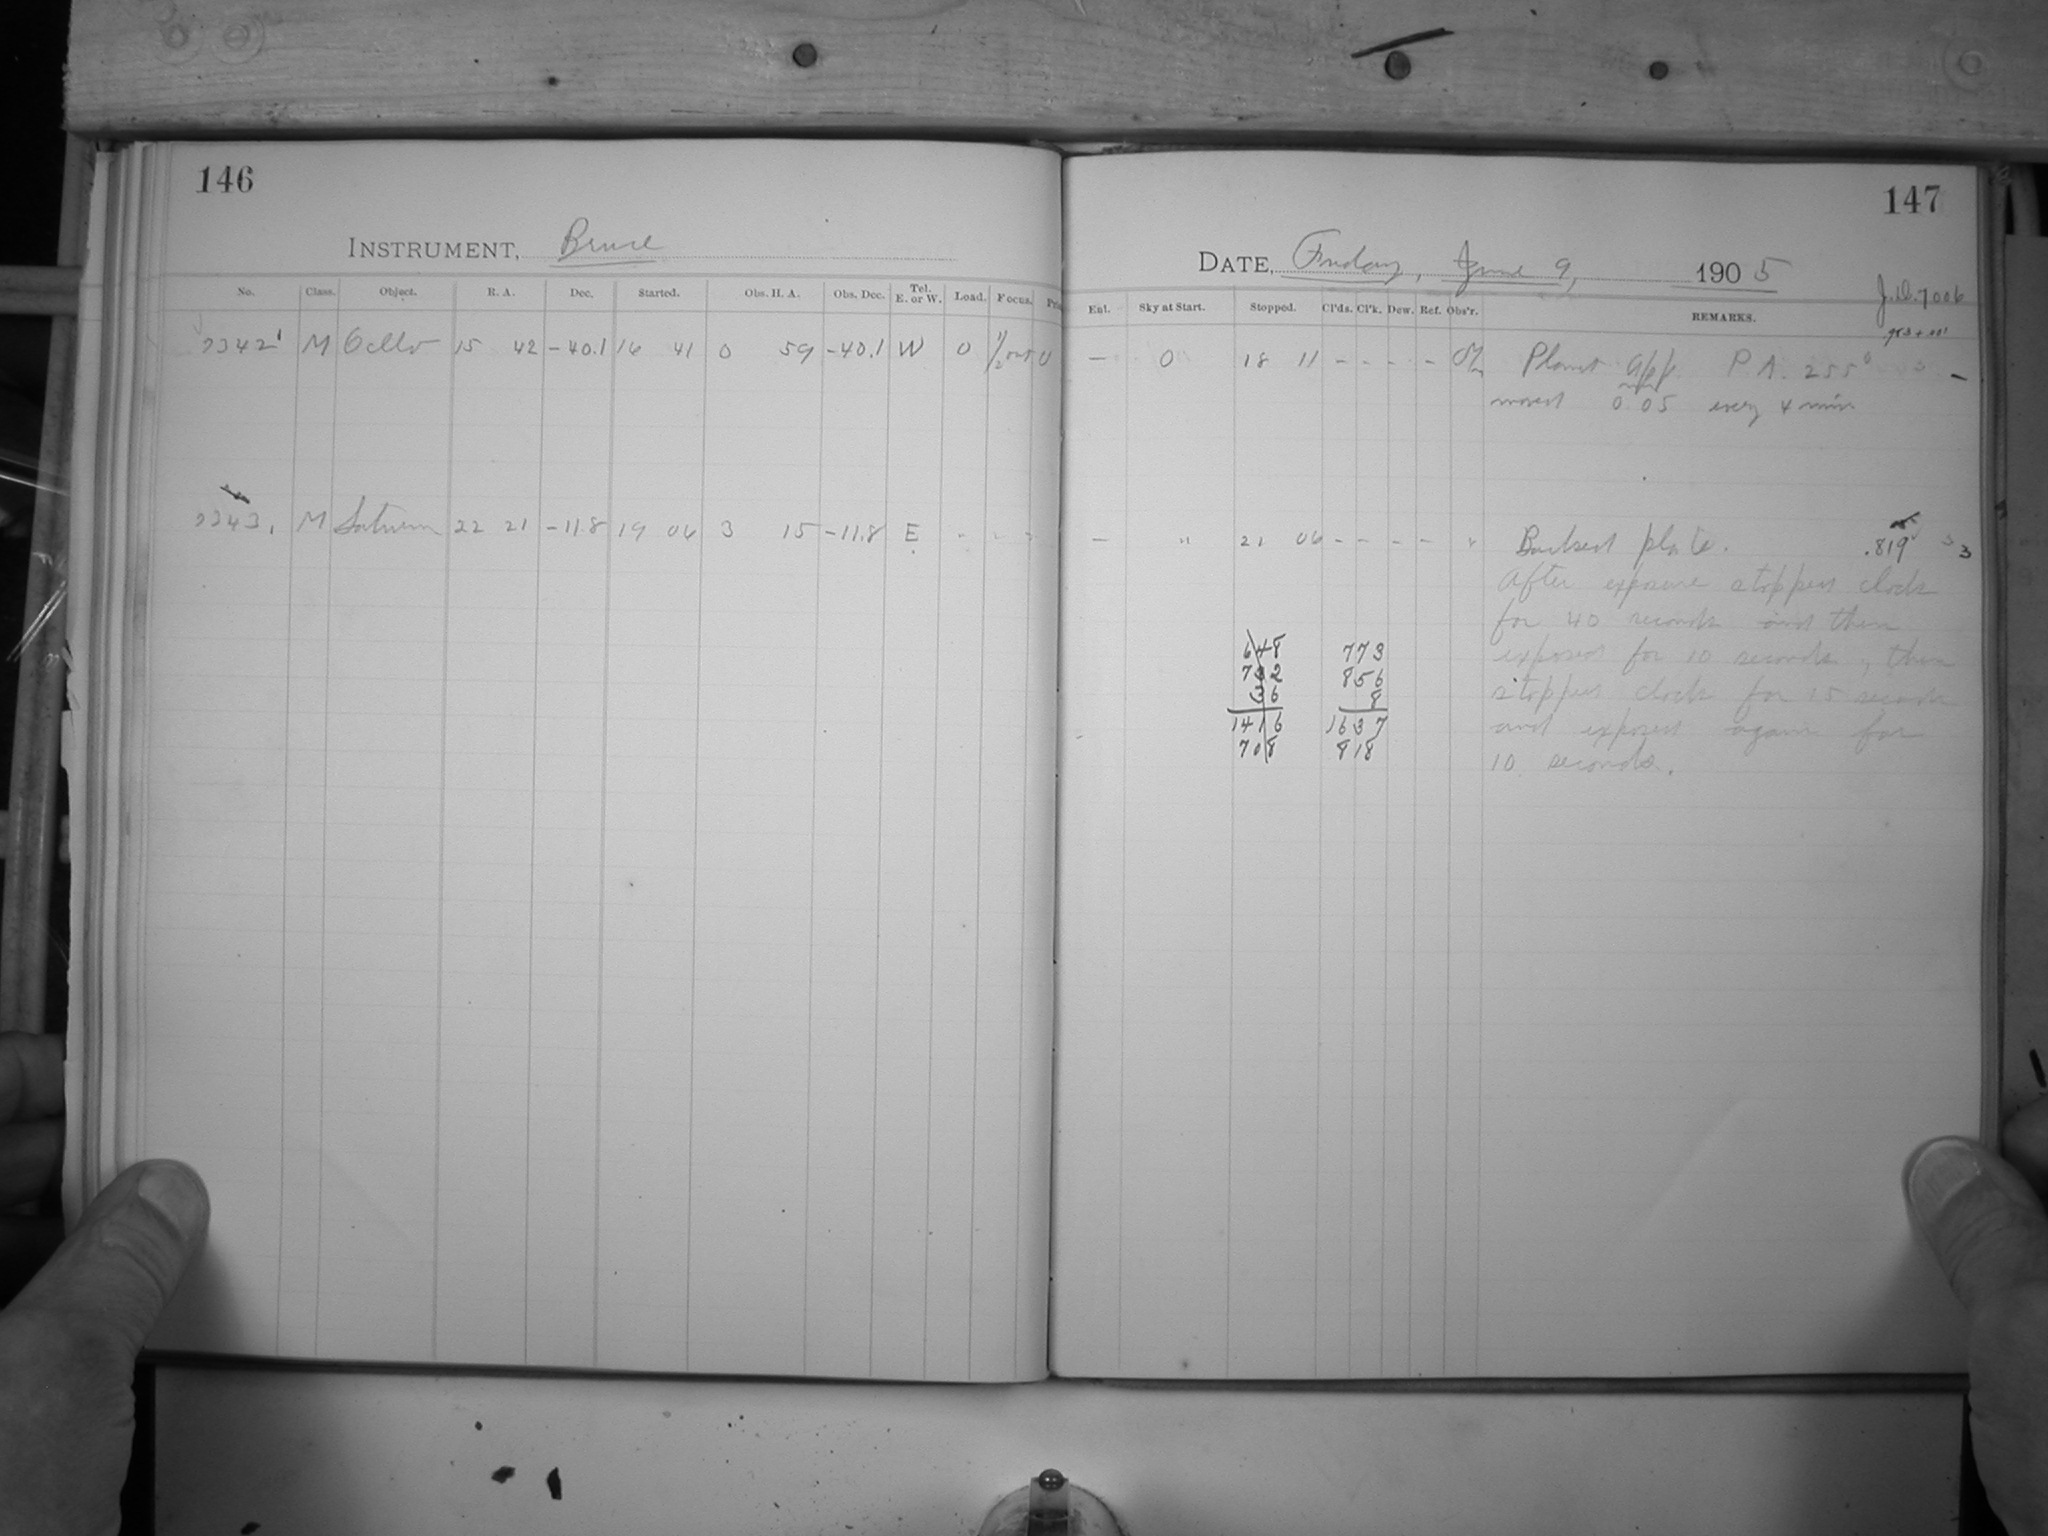 146
INSTRUMENT, Bruce
No. Class. Object. R. A. Dec. Started. Obs. H. A. Obs. Dec. Tel. E. or W. Load. Focus.
M Ocllo 15 42 -40.1 16 41 0 59 -40.1 W 0
M Saturn 22 21 -11.8 19 06 3 15 -11.8 E
147
DATE, Friday, June 9, 1905
J.D. 7006
Ent. Sky at Start. Stopped. Cl'ds. Cl'k. Dew. Ref. Obs'r. REMARKS.
— 0 18 11 - - - - Planet app. P.A. 255°
moved 0.05 every 4 min
— " 21 06 - - - - " Backed plate. .819 3
After exposure stopped clock
for 40 seconds and then
exposed for 10 seconds, then
stopped clock for 15 seconds
and exposed again for
10 seconds.
648 773
732 856
36 8
1416 1637
708 818